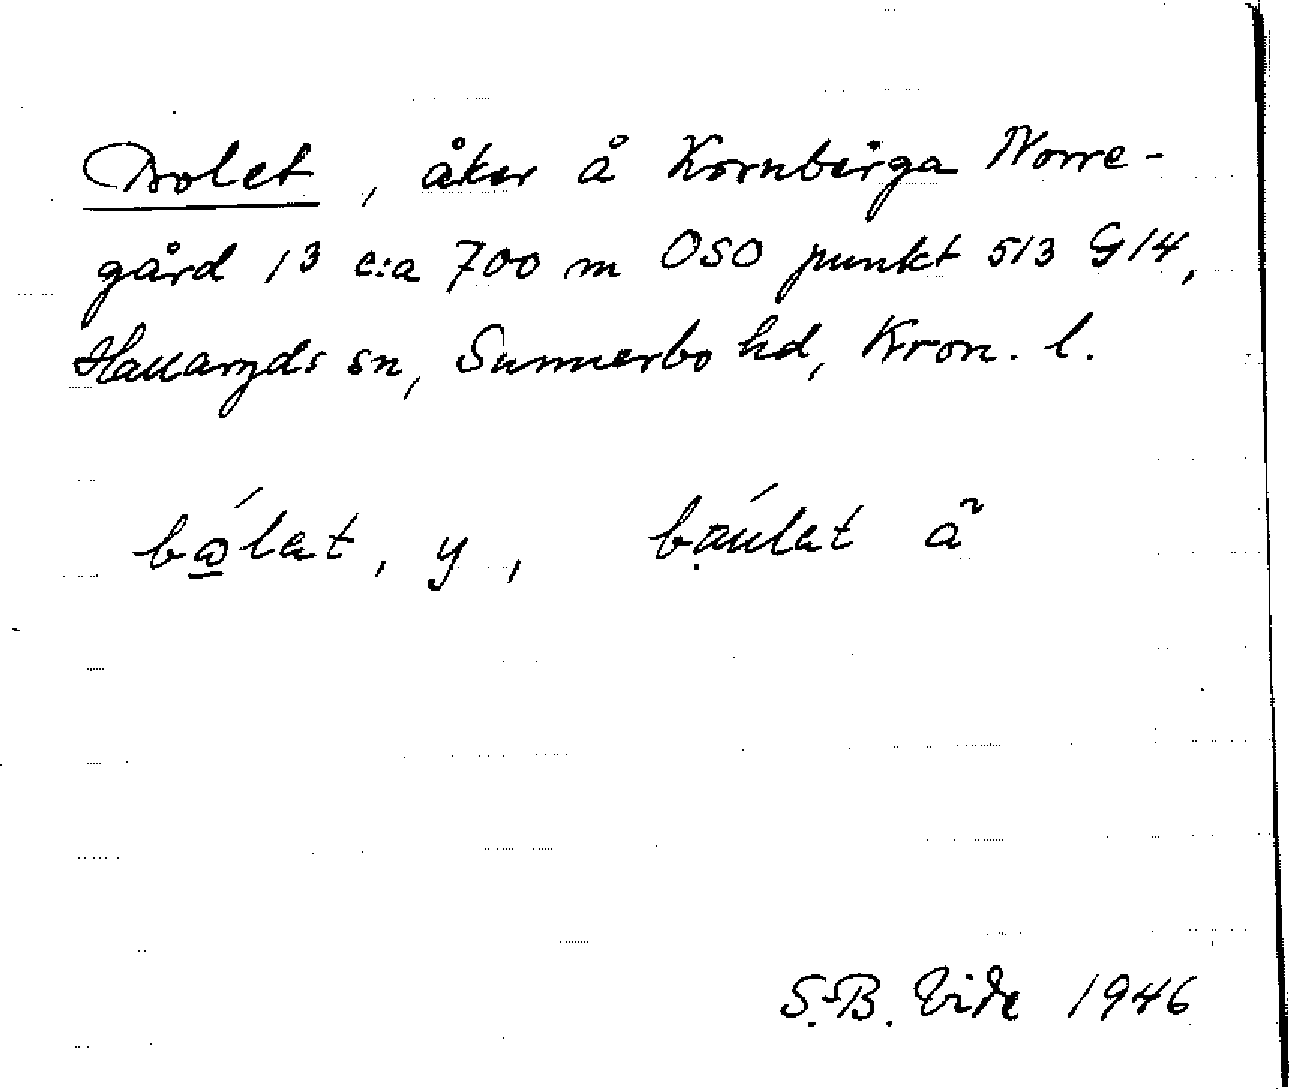 Bolet, åker å Kornbirga Norre-
gård 1³ c:a 700 m OSO punkt 513 G14,
Hallaryds sn, Sunnerbo hd, Kron. l.
bólat, y, baúlat ã
S.-B. Vide 1946